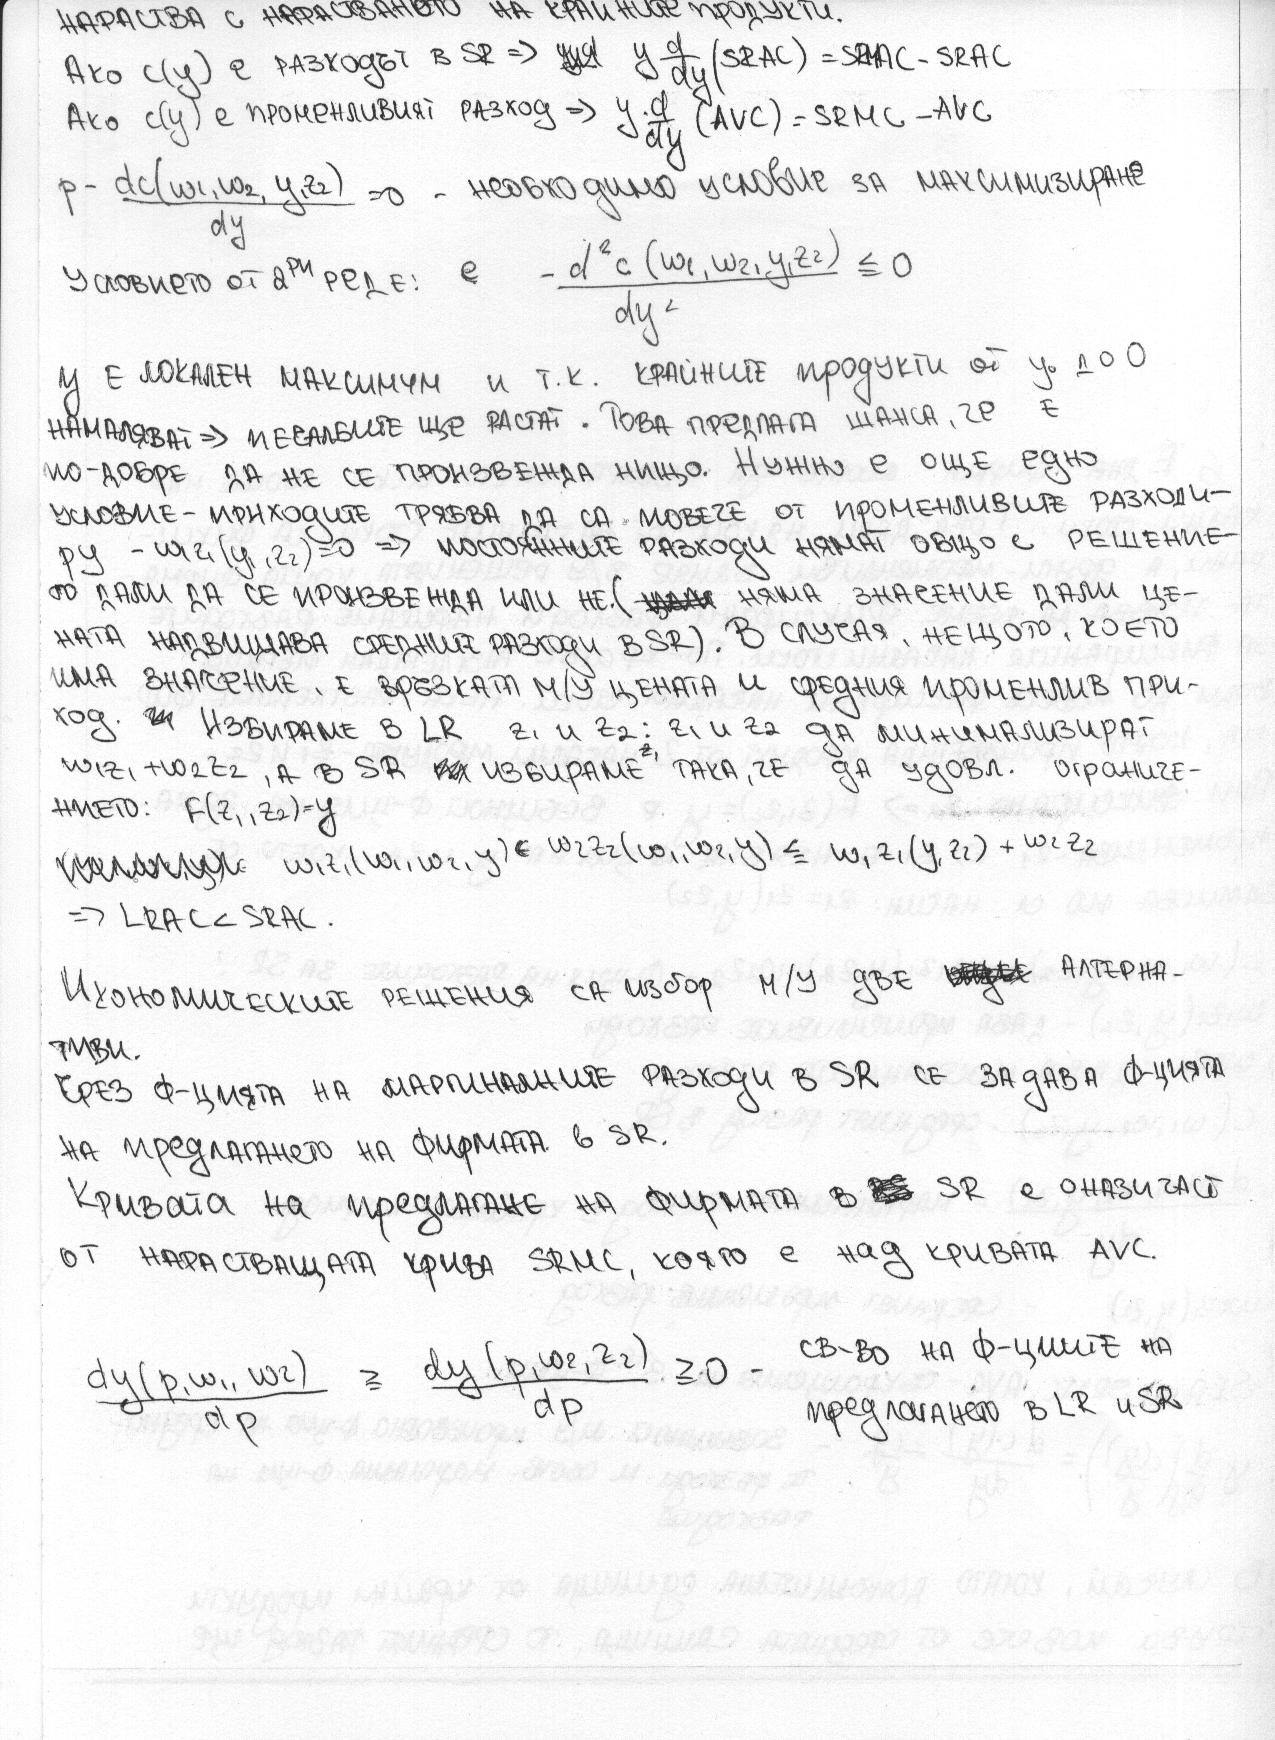 нараства с нарастването на крайните продукти.
Ако c(y) е разходът в SR => y d/dy (SRAC) = SRMC - SRAC
Ако c(y) е променливият разход => y d/dy (AVC) = SRMC - AVC
p - dc(w1, w2, y, z2)/dy = 0 - необходимо условие за максимизиране
Условието от 2ри ред е: е - d²c(w1, w2, y, z2)/dy² ≤ 0
y е локален максимум и т.к. крайните продукти от y0 до 0
намаляват => печалбите ще растат. Това предлага шанса, че е
по-добре да не се произвежда нищо. Нужно е още едно
условие - приходите трябва да са повече от променливите разходи -
py - w1z1(y, z2) ≥ 0 => постоянните разходи нямат общо с решение-
то дали да се произвежда или не. (няма значение дали це-
ната надвишава средните разходи в SR). В случая, нещото, което
има значение, е връзката м/у цената и средния променлив при-
ход. Избираме в LR z1 и z2: z1 и z2 да минимализират
w1z1 + w2z2, а в SR избираме z1 така, че да удовл. ограниче-
нието: F(z1, z2) = y
w1z1(w1, w2, y) + w2z2(w1, w2, y) ≤ w1z1(y, z2) + w2z2
=> LRAC < SRAC.
Икономическите решения са избор м/у две алтерна-
тиви.
Чрез ф-цията на маргиналните разходи в SR се задава ф-цията
на предлагането на фирмата в SR.
Кривата на предлагане на фирмата в SR е онази част
от нарастващата крива SRMC, която е над кривата AVC.
dy(p, w1, w2)/dp ≥ dy(p, w2, z2)/dp ≥ 0 - св-во на ф-циите на
предлагането в LR и SR